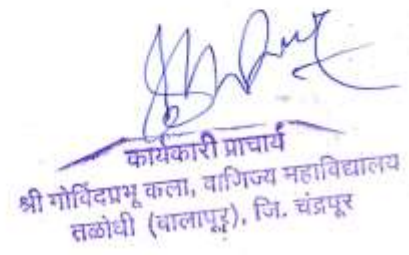 कार्यकारी प्राचार्य
श्री गोविंदप्रभू कला, वाणिज्य महाविद्यालय
तळोधी (बालापूर), जि. चंद्रपूर